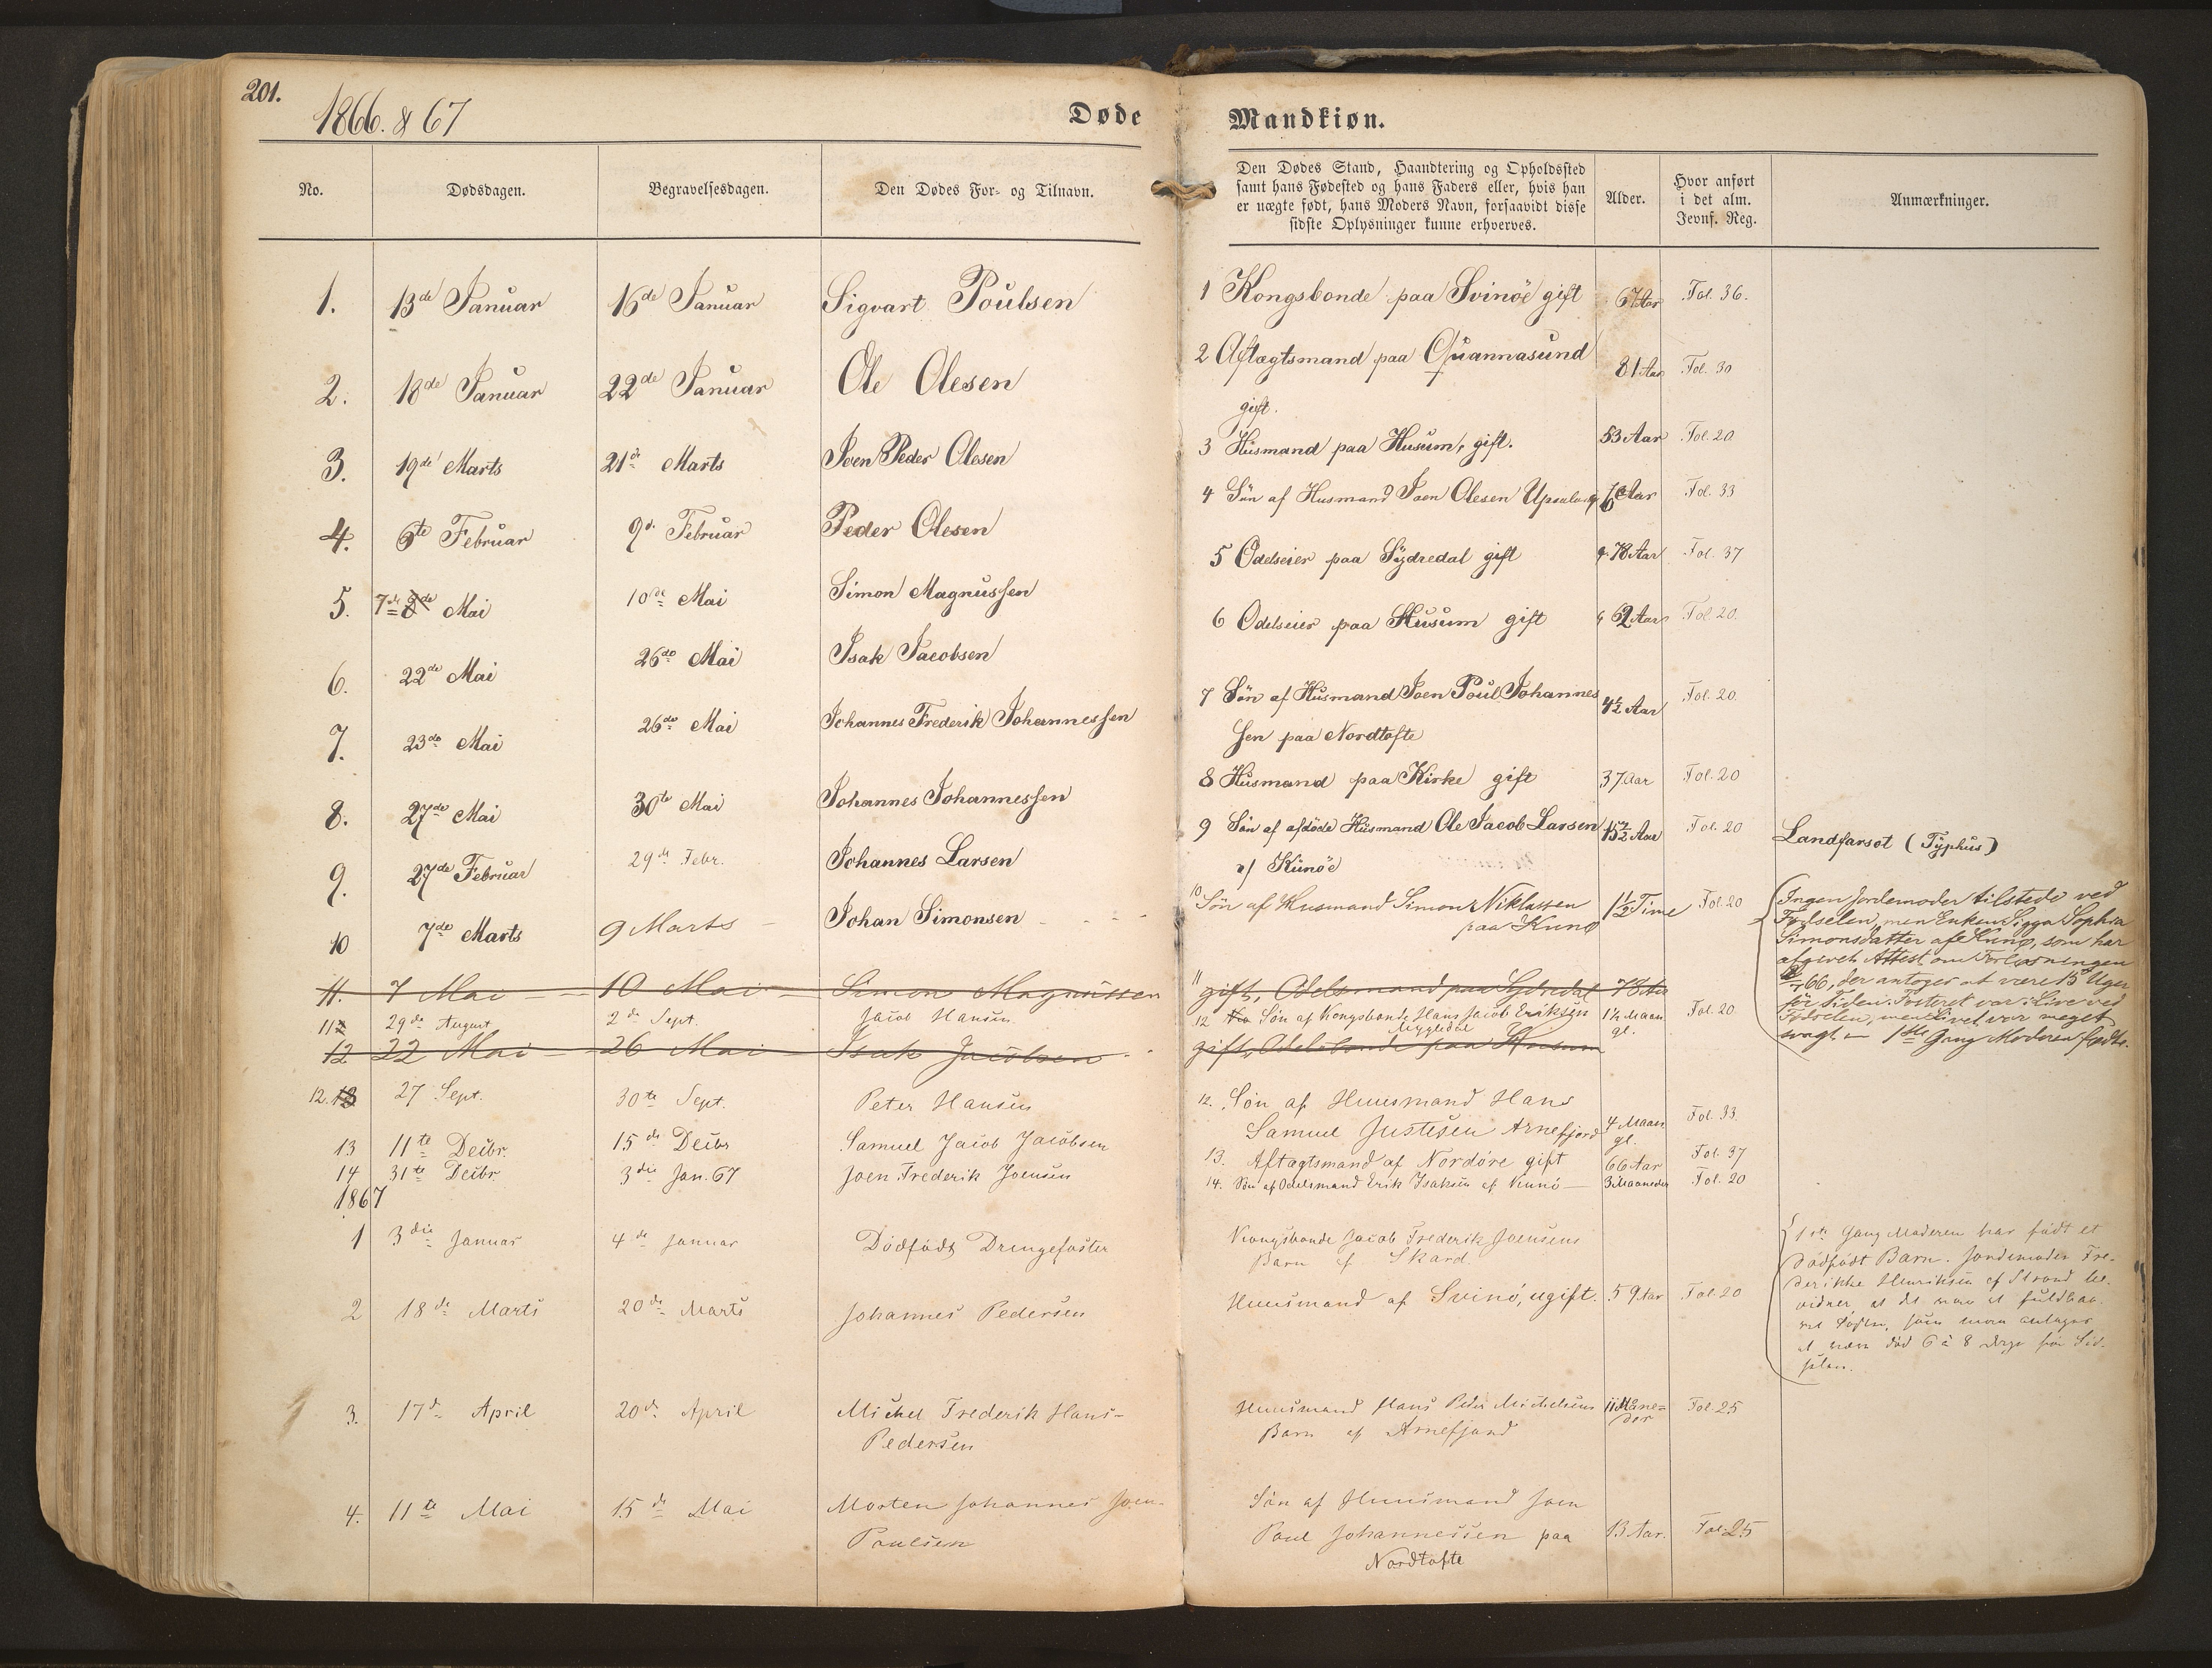 201.
1866. & 67
Døde
Mandkiøn.
No.
Dødsdagen.
Begravelsesdagen.
Den Dødes For- og Tilnavn.
Den Dødes Stand, Haandtering og Opholdssted
samt hans Fødested og hans Faders eller, hvis han
er uægte født, hans Moders Navn, forsaavidt disse
sidste Oplysninger kunne erhverves.
Alder.
Hvor anført
i det alm.
Jevnf. Reg.
Anmærkninger.
1. 13de Januar 16de Januar Sigvart Poulsen 1 Kongsbonde paa Svinöe gift 67 Aar Fol. 36.
2. 18de Januar 22de Januar Ole Olesen 2 Aftægtsmand paa Quannasund 81 Aar Fol. 30
gift.
3. 19de Marts 21de Marts Joen Peder Olesen 3 Husmand paa Husum, gift. 53 Aar Fol. 20
4. 6te Februar 9de Februar Peder Olesen 4 Sön af Husmand Joen Olesen Aar Fol. 33
5. 7de 8de Mai 10de Mai Simon Magnussen 5 Odelseier paa Sydredal gift 78 Aar Fol. 37
6. 22de Mai 26de Mai Isak Jacobsen 6 Odelseier paa Husum gift 62 Aar Fol 20.
7. 23de Mai 26de Mai Johannes Frederik Johannessen 7 Sön af Husmand Joen Poul Johannes 4½ Aar Fol. 20
sen paa Nordtofte
8. 27de Mai 30te Mai Johannes Johannessen 8 Husmand paa Kirke gift 37 Aar Fol. 20
9. 27de Februar 29de Febr. Johannes Larsen 9 Sön af afdöde Husmand Ole Jacob Larsen 15½ Aar Fol. 20 Landfarsot (Typhus)
af Kunöe
10 7de Marts 9 Marts Johan Simonsen 10 Søn af Husmand Simon Niklassen 1½ Time Fol. 20
paa Kunø
Ingen Jordemoder tilstede ved
Fødselen, men Enken Sigga Sophia
Simonsdatter af Kunø, som har
afgivet Attest om Forløsningen
66, der antages at være 15 Uger
før Tiden. Fosteret var i Live ved
Fødselen, men Livet var meget
svagt. – 1ste Gang Moderen fødte.
11. 7 Mai 10 Mai Simon Magnussen 11 gift, Odelsmand paa Sydredal 78 Aar
11 29de August 2de Sept. Jacob Hansen 12 Søn af Kongsbonde Hans Jacob Eriksen 1¼ Maan Fol. 20
Mygledal gl.
12 22 Mai 26 Mai Isak Jacobsen gift, Odelsbonde paa Husum
12. 13 27 Sept. 30te Sept. Peter Hansen 12. Søn af Huusmand Hans
Samuel Justesen Arnefjord 4 Maan Fol. 33.
gl.
13 11te Decbr. 15de Decbr Samuel Jacob Jacobsen 13. Aftægtsmand af Nordöre gift 66 Aar Fol. 37
14 31te Decbr 3die Jan. 67 Joen Frederik Joensen 14. Søn af Odelsmand Erik Isaksen af Kunö 3 Maaneder Fol. 20
1867
1 3die Januar 4de Januar Dödfödt Drengefoster Kongsbonde Jacob Frederik Joensens
Barn af Skard.
1ste Gang Moderen har födt et
dödfödt Barn. Jordemoder Fre-
derikke Henriksen af Strand be-
vidner, at det var et fuldbaa-
ret Foster, som man antager
at være död 6 à 8 Dage för Föd-
selen.
2 18de Marts 20de Marts Johannes Pedersen Huusmand af Svinö, ugift. 59 Aar Fol 20
3. 17de April 20de April Michel Frederik Hans- Huusmand Hans Peder Michelsens 11 Maane- Fol. 25
Pedersen Barn af Arnefjord der
4. 11te Mai 15de Mai Morten Johannes Joen- Sön af Huusmand Joen
Poulsen Poul Johannessen paa 13 Aar. Fol. 25
Nordtofte